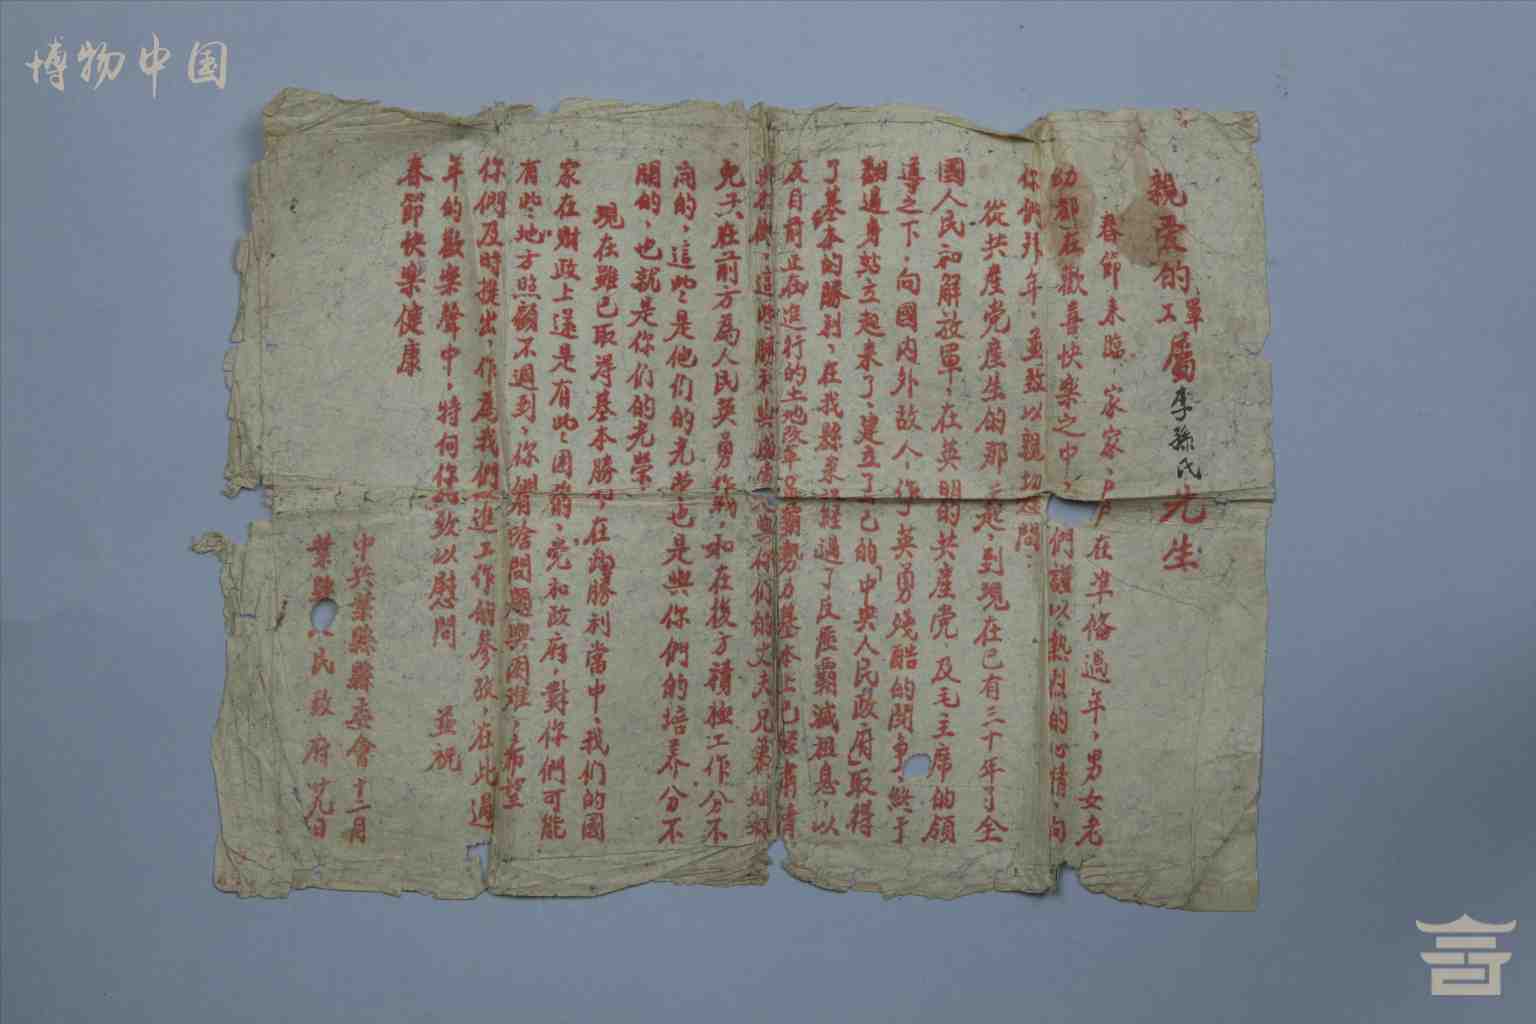 博物中国
親爱的軍工屬李孫氏先生
春節来臨、家家、户户在準俻過年、男女老
幼都在歡喜快樂之中、們謹以热烈的心情、向
你們拜年、並致以親切慰問
從共産党産生的那一起、到現在已有三十年了全
國人民和解放軍、在英明的共産党、及毛主席的領
導之下、向國内外敌人、作了英勇残酷的閗争、終于
翻過身站立起来了、建立了自己的「中央人民政府」取得
了基本的勝利、在我縣来經過了反匪霸减祖息、以
及目前正在進行的土地改革霸勢力基本上已經肅清
這些勝利與你们的丈夫兄弟
兒子、在前方為人民英勇作戦、和在後方積極工作分不
開的、這些、是他们的光荣、也是與你們的培养分不
開的、也就是你们的光荣、
現在雖已取得基本勝利、在勝利當中、我们的國
家在财政上還是有些、困难、党和政府、對你們可能
有些、地方照顧不過到、你們有啥問題與困难、希望
你們及時提出、作為我們改進工作的參攷、在此過
年的歡樂聲中、特向你們致以慰問 並祝
春節快樂健康
中共葉縣縣委會十二月
葉縣人民政府廿九日